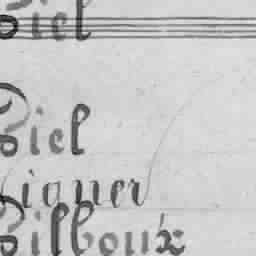 Biel
Biel
igner
Bilboux